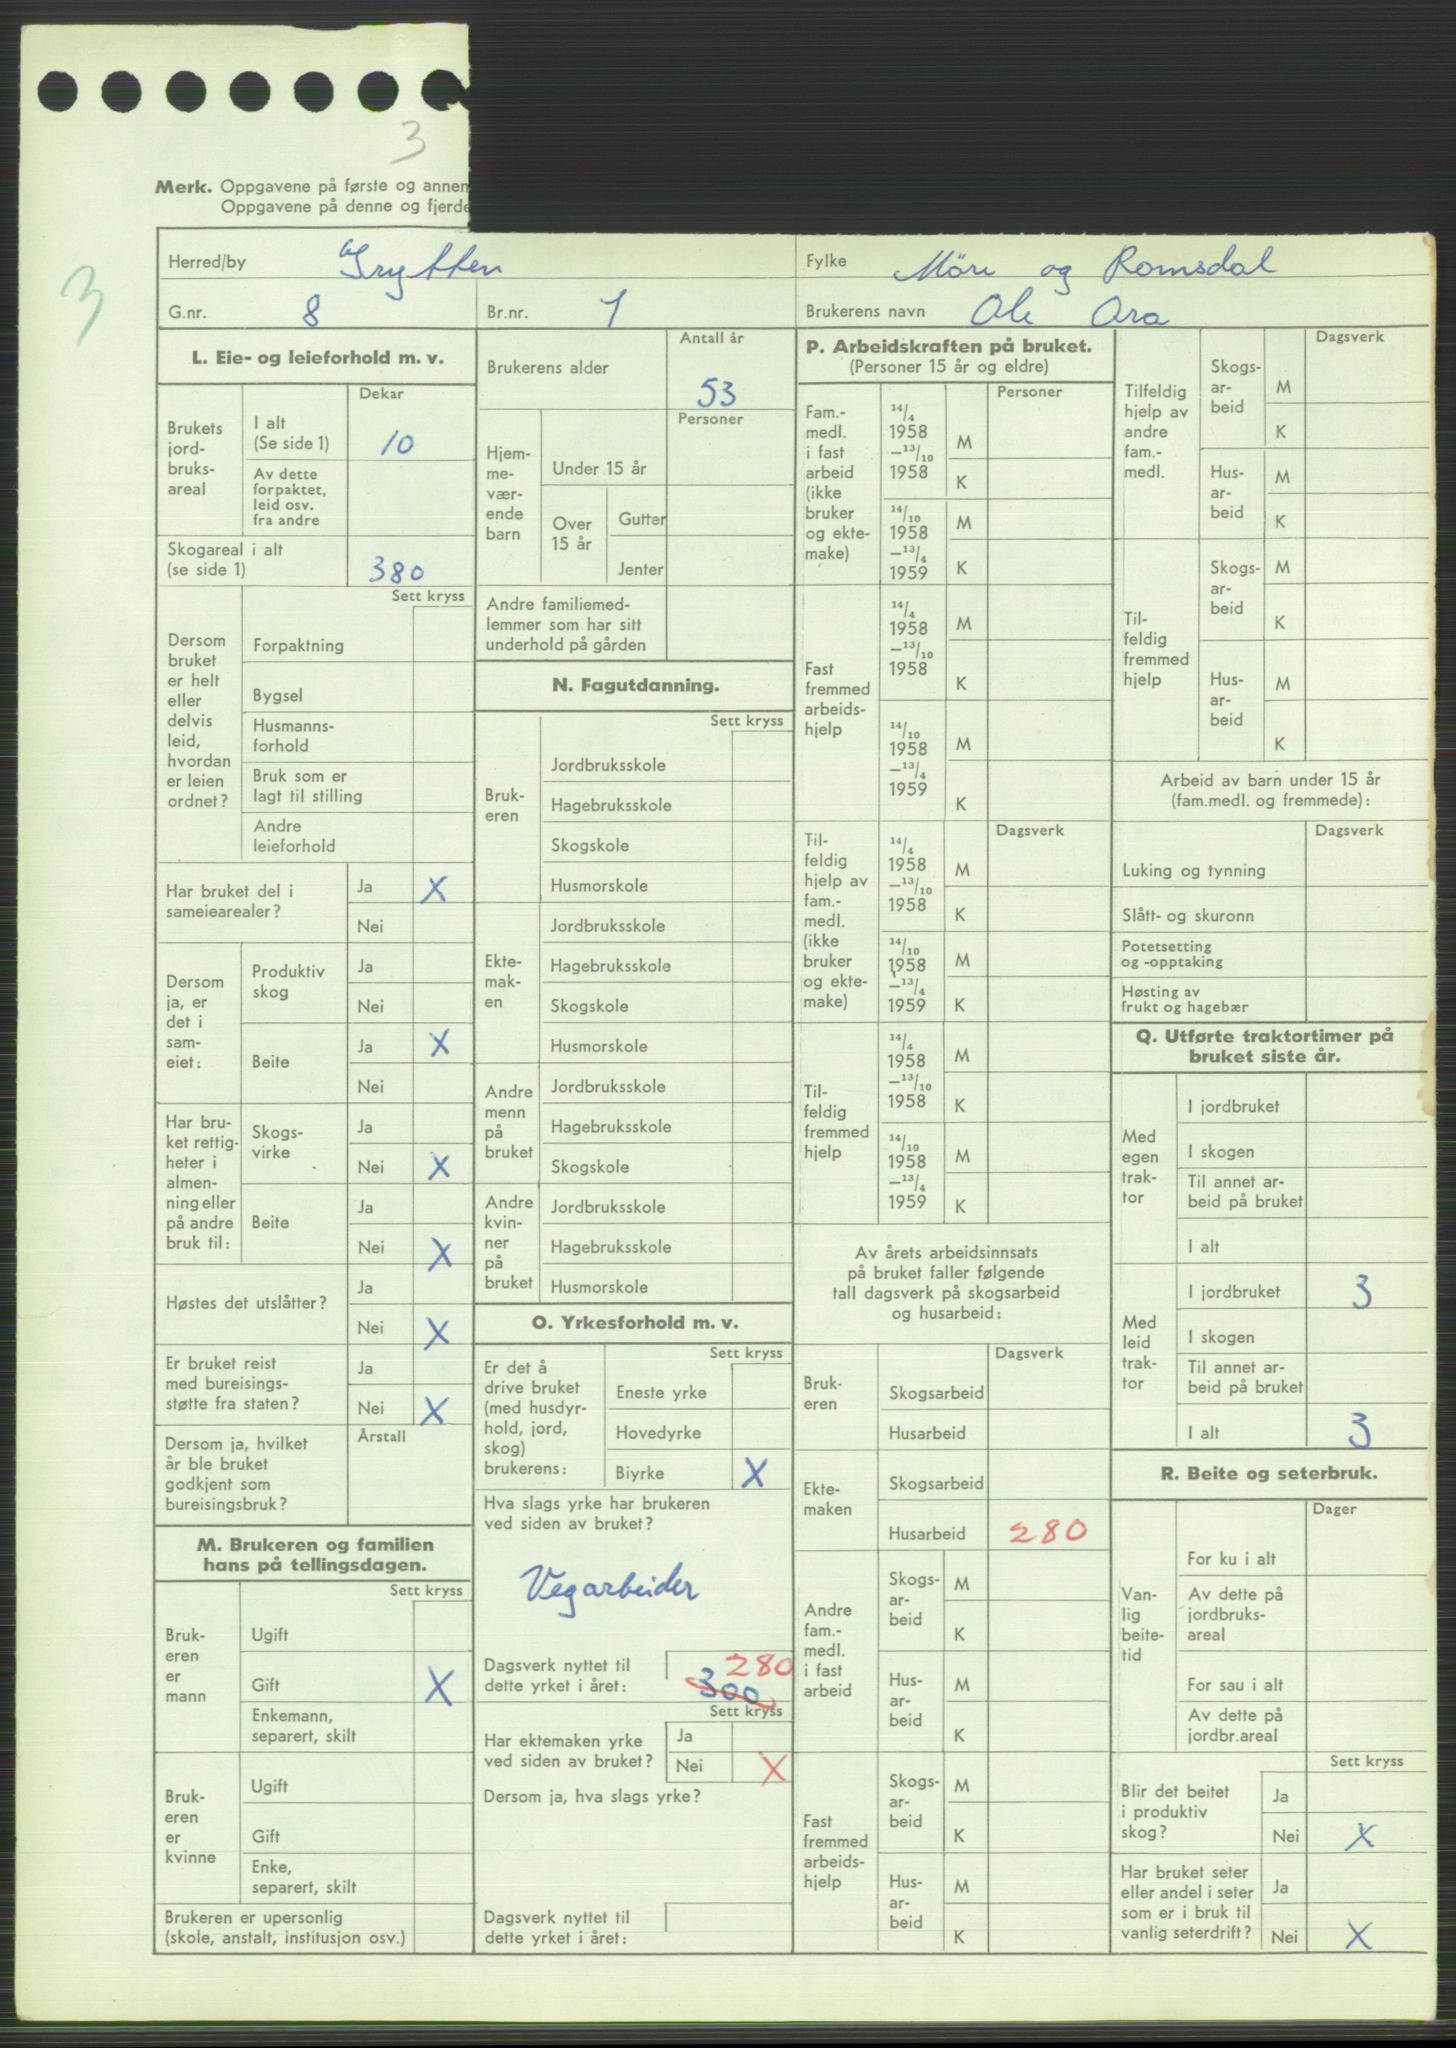 3
3
Merk. Oppgavene på første og annen
Oppgavene på denne og fjerde
Herred/by Grytten
Fylke Möre og Romsdal
G.nr. 8
Br.nr. 1
Brukerens navn Ole Ora
L. Eie- og leieforhold m. v.
Dekar
Brukets jord- bruks- areal
I alt (Se side 1) 10
Av dette forpaktet, leid osv. fra andre
Skogareal i alt (se side 1) 380
Sett kryss
Dersom bruket er helt eller delvis leid, hvordan er leien ordnet?
Forpaktning
Bygsel
Husmanns- forhold
Bruk som er lagt til stilling
Andre leieforhold
Har bruket del i sameiearealer?
Ja X
Nei
Dersom ja, er det i sam- eiet:
Produktiv skog
Ja
Nei
Beite
Ja X
Nei
Har bru- ket rettig- heter i almen- ning eller på andre bruk til:
Skogs- virke
Ja
Nei X
Beite
Ja
Nei X
Høstes det utslåtter?
Ja
Nei X
Er bruket reist med bureisings- støtte fra staten?
Ja
Nei X
Dersom ja, hvilket år ble bruket godkjent som bureisingsbruk?
Årstall
M. Brukeren og familien hans på tellingsdagen.
Sett kryss
Bruk- eren er mann
Ugift
Gift X
Enkemann, separert, skilt
Bruk- eren er kvinne
Ugift
Gift
Enke, separert, skilt
Brukeren er upersonlig (skole, anstalt, institusjon osv.)
Antall år
Brukerens alder 53
Personer
Hjem- me- vær- ende barn
Under 15 år
Over 15 år
Gutter
Jenter
Andre familiemed- lemmer som har sitt underhold på gården
N. Fagutdanning.
Sett kryss
Bruk- eren
Jordbruksskole
Hagebruksskole
Skogskole
Husmorskole
Ekte- mak- en
Jordbruksskole
Hagebruksskole
Skogskole
Husmorskole
Andre menn på bruket
Jordbruksskole
Hagebruksskole
Skogskole
Andre kvin- ner på bruket
Jordbruksskole
Hagebruksskole
Husmorskole
O. Yrkesforhold m. v.
Sett kryss
Er det å drive bruket (med husdyr- hold, jord, skog) brukerens:
Eneste yrke
Hovedyrke
Biyrke X
Hva slags yrke har brukeren ved siden av bruket?
Vegarbeider
Dagsverk nyttet til dette yrket i året: 280
300
Sett kryss
Har ektemaken yrke ved siden av bruket?
Ja
Nei X
Dersom ja, hva slags yrke?
Dagsverk nyttet til dette yrket i året:
P. Arbeidskraften på bruket.
(Personer 15 år og eldre)
Personer
Fam.- medl. i fast arbeid (ikke bruker og ekte- make)
14/4 1958 —13/10 1958
M
K
14/10 1958 —13/4 1959
M
K
Fast fremmed arbeids- hjelp
14/4 1958 —13/10 1958
M
K
14/10 1958 —13/4 1959
M
K
Dagsverk
Til- feldig hjelp av fam.- medl. (ikke bruker og ekte- make)
14/4 1958 —13/10 1958
M
K
14/10 1958 —13/4 1959
M
K
Til- feldig fremmed hjelp
14/4 1958 —13/10 1958
M
K
14/10 1958 —13/4 1959
M
K
Av årets arbeidsinnsats
på bruket faller følgende
tall dagsverk på skogsarbeid
og husarbeid:
Dagsverk
Bruk- eren
Skogsarbeid
Husarbeid
Ekte- maken
Skogsarbeid
Husarbeid 280
Andre fam.- medl. i fast arbeid
Skogs- ar- beid
M
K
Hus- ar- beid
M
K
Fast fremmed arbeids- hjelp
Skogs- ar- beid
M
K
Hus- ar- beid
M
K
Dagsverk
Tilfeldig hjelp av andre fam.- medl.
Skogs- ar- beid
M
K
Hus- ar- beid
M
K
Til- feldig fremmed hjelp
Skogs- ar- beid
M
K
Hus- ar- beid
M
K
Arbeid av barn under 15 år
(fam.medl. og fremmede):
Dagsverk
Luking og tynning
Slått- og skuronn
Potetsetting og -opptaking
Høsting av frukt og hagebær
Q. Utførte traktortimer på bruket siste år.
Med egen trak- tor
I jordbruket
I skogen
Til annet ar- beid på bruket
I alt
Med leid trak- tor
I jordbruket 3
I skogen
Til annet ar- beid på bruket
I alt 3
R. Beite og seterbruk.
Dager
Van- lig beite- tid
For ku i alt
Av dette på jordbruks- areal
For sau i alt
Av dette på jordbr.areal
Sett kryss
Blir det beitet i produktiv skog?
Ja
Nei X
Har bruket seter eller andel i seter som er i bruk til vanlig seterdrift?
Ja
Nei X